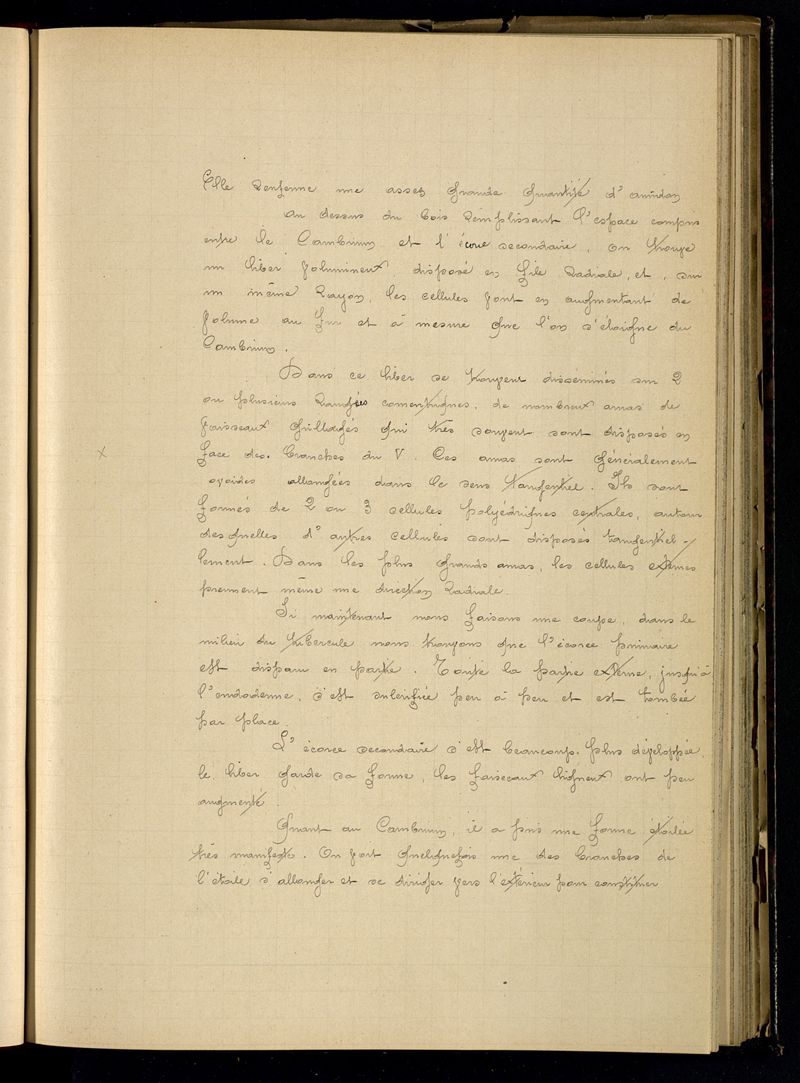 Elle renferme une assez grande quantité d'amidon
au dessus du bois remplissant l'espace compris
entre le Cambium et l'écorce secondaire, on trouve
un liber volumineux, disposé en file radiale, et, sur
un même rayon, les cellules vont en augmentant de
volume au fur et à mesure que l'on s'éloigne du
Cambium.
Dans ce liber se trouvent disséminés sur 2
ou plusieurs rangées concentriques, de nombreux amas de
vaisseaux grillagés qui très souvent sont disposés en
X face des branches du V. Ces amas sont généralement
ovoïdes allongées dans le sens tangentiel. Ils sont
formés de 2 ou 3 cellules polyédriques centrales, autour
desquelles d'autres cellules sont disposés tangentiel-
lement. Dans les plus grands amas, les cellules externes
prennent même une direction radiale.
Si maintenant nous faisons une coupe, dans le
milieu du tubercule nous trouvons que l'écorce primaire
est disparu en partie. Toute la partie externe, jusqu'à
l'endoderme, s'est subérifiée peu à peu et est tombée
par place.
L'écorce secondaire s'est beaucoup plus développée,
le liber garde sa forme, les faisceaux ligneux ont peu
augmenté.
Quant au Cambium, il a pris une forme étoilée
très manifeste. On voit quelquefois une des branches de
l'étoile s'allonger et se diriger vers l'extérieur pour constituer